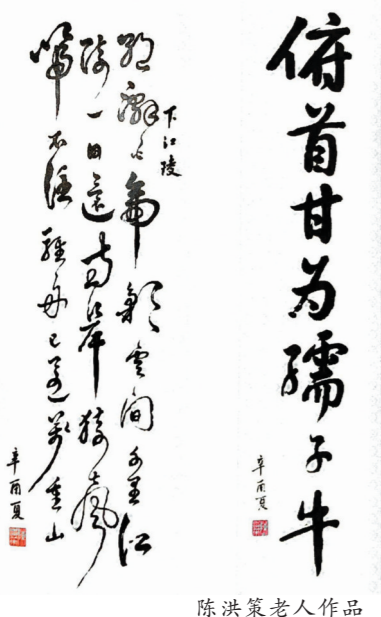 俯首甘为孺子牛
辛酉夏
下江陵
朝辞白帝彩云间千里江
陵一日還两岸猿声
啼不住轻舟已过万重山
辛酉夏
陈洪策老人作品